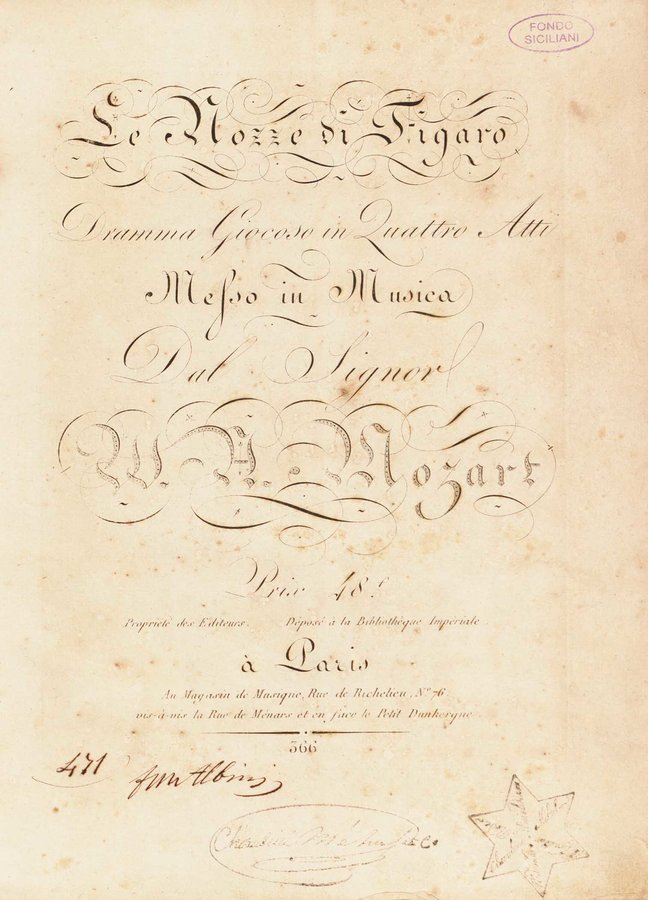 FONDO
SICILIANI
Le Nozze di Figaro
Dramma Giocoso in Quattro Atti
Meſso in Musica
Dal Signor
W. A. Mozart
Prix 48.f
Propriété des Editeurs. Déposé à la Bibliothèque Impériale.
à Paris
Au Magasin de Musique, Rue de Richelieu, N.º 76.
vis-à-vis la Rue de Ménars et en face le Petit Dunkerque.
366
471